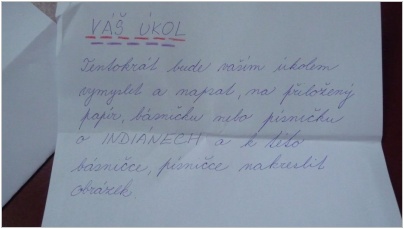 VÁŠ ÚKOL
Tentokrát bude vašim úkolem
vymyslet a napsat, na přiložený
papír, básničku nebo písničku
o INDIÁNECH a k této
básničce, písničce nakreslit
obrázek.